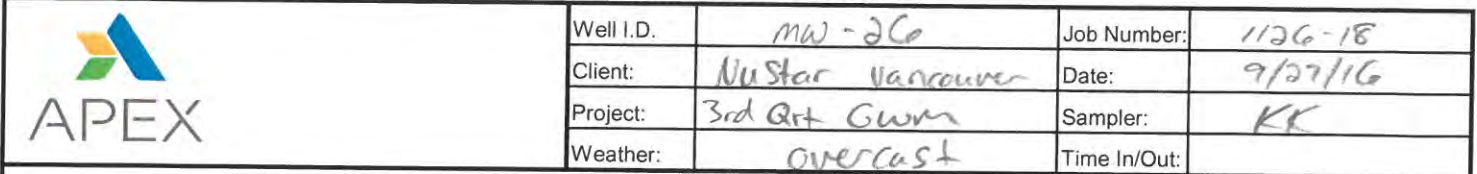 Well I.D. MW-26 Job Number: 1126-18
APEX Client: NuStar Vancouver Date: 9/27/16
Project: 3rd Qrt GWM Sampler: KK
Weather: overcast Time In/Out: